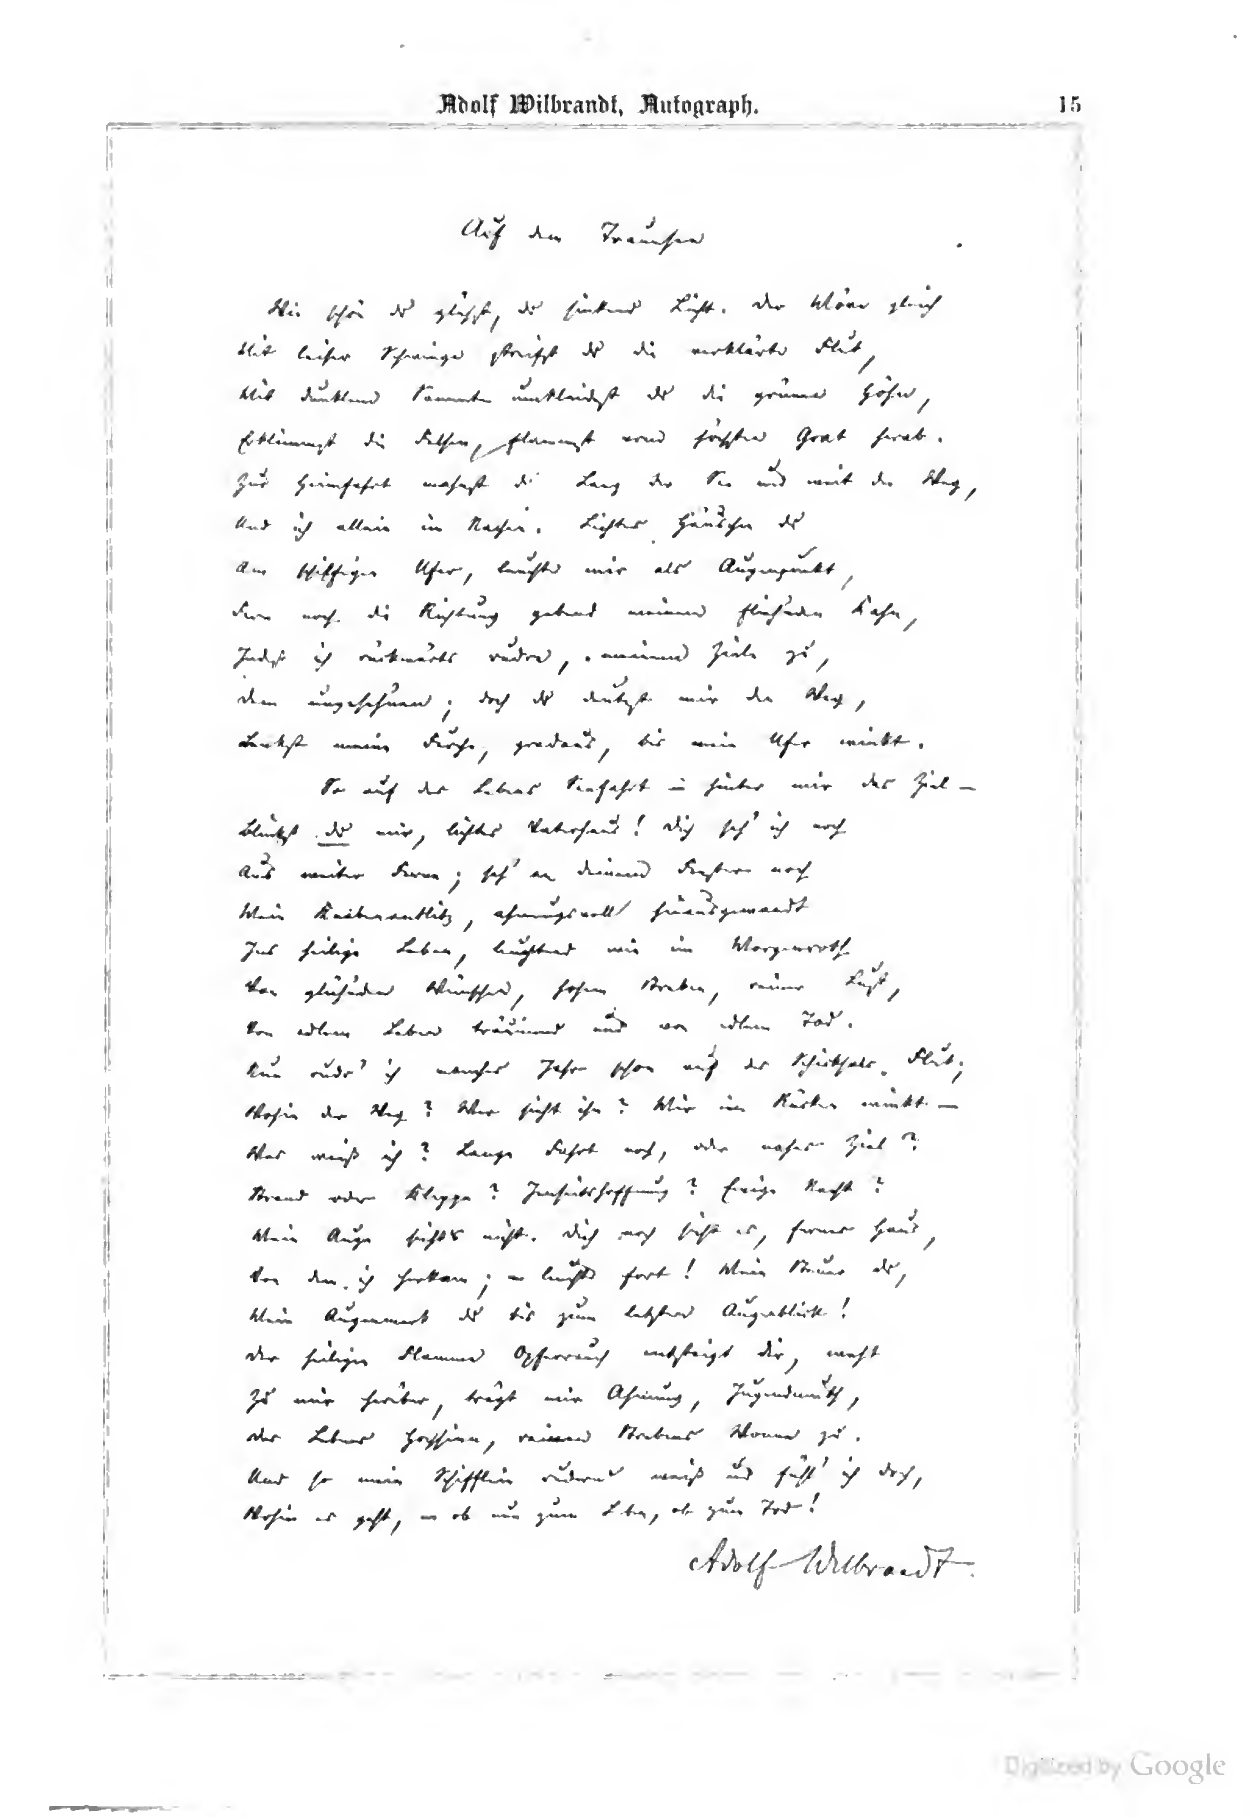 Adolf Wilbrandt, Autograph.
15
Auf dem Traunsee
Wie schön du glühst, du sinkend Licht. Der Möve gleich
Mit leiser Schwinge streifst du die verklärte Flut,
Mit dunklem Sammte umkleidest du die grünen Höhn,
Erklimmst die Felsen, flammst vom höchsten Grat herab.
Zur Heimfahrt mahnst du. Lang der See und weit der Weg,
Und ich allein im Nachen. Lichtes Häuschen du
Am schilfigen Ufer, leuchte mir als Augenpunkt,
Fern noch die Richtung gebend meinem fliehenden Kahn,
Indeß ich rückwärts rudre, meinem Ziele zu,
Dem ungesehnen; doch du deutest mir den Weg,
Lenkst meine Furche, gradaus, bis mein Ufer winkt.
So auf des Lebens Seefahrt – hinter mir das Ziel –
Blinkst du mir, lichtes Vaterhaus! Dich seh' ich noch
Aus weiter Ferne; seh' an deinem Fenster noch
Mein Knabenantlitz, ahnungsvoll hinausgewandt
Ins heilige Leben, leuchtend wie im Morgenroth
Von glühenden Wünschen, hohem Streben, reiner Lust,
Von edlem Leben träumend und von edlem Tod.
Nun rudr' ich manches Jahr schon auf des Schicksals Flut;
Wohin der Weg? Wer sieht ihn? Mir im Rücken winkt –
Was weiß ich? Lange Fahrt noch, oder nahes Ziel?
Strand oder Klippe? Jenseitshoffnung? Ewige Nacht?
Mein Auge sieht's nicht. Dich noch sieht es, fernes Haus,
Von dem ich herkam; o leucht' fort! Mein Steuer du,
Mein Augenmerk du bis zum letzten Augenblick!
Der heiligen Flamme Opferrauch entsteigt dir, weht
Zu mir herüber, trägt mir Ahnung, Jugendmuth,
Des Lebens Hochsinn, reinen Strebens Wonne zu.
Und so mein Schifflein rudernd weiß und fühl' ich doch,
Wohin es geht, o ob nun zum Leben, ob zum Tod!
Adolf Wilbrandt.
Digitized by Google